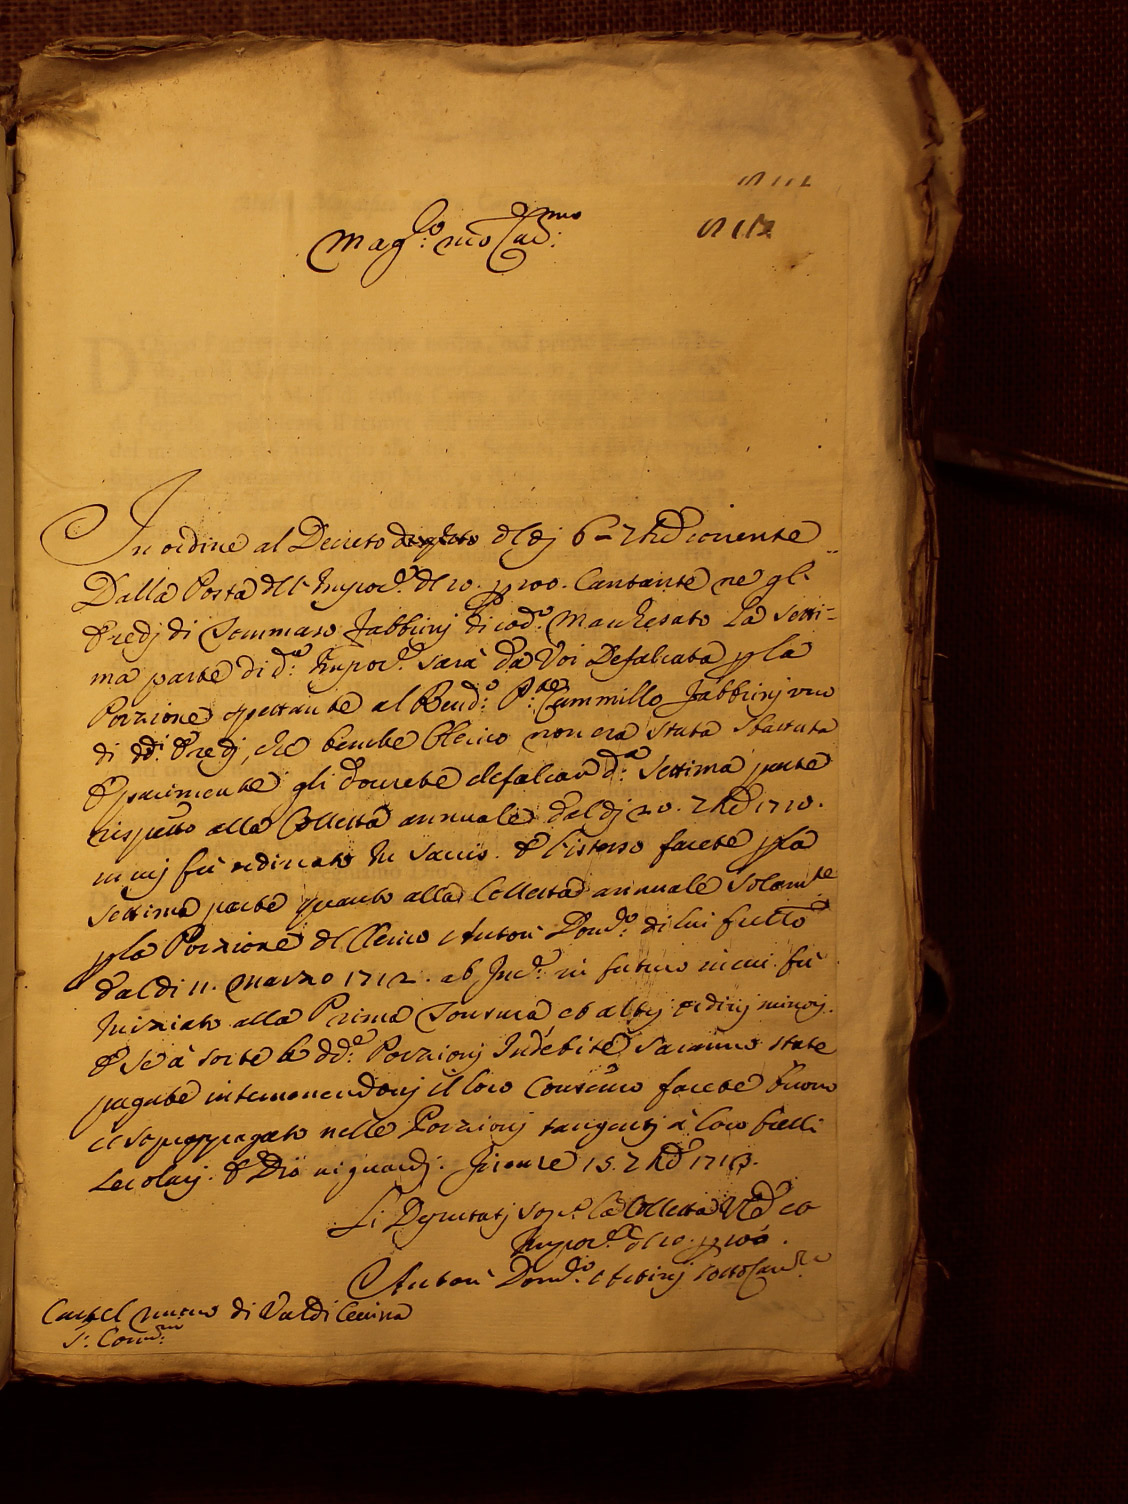 Mag:co mio Car:mo
In ordine al Decreto del dj 6 7bre corrente
Dalla Posta dell' Impos:e del 10. p 100. Cantante ne gl'
Eredj di Tommaso Fabbrinj di cod:o Marchesato la setti=
ma parte di d:a Impos:e sarà da Voi Defalcata p la
Porzione spettante al Rend:o P:te Cammillo Fabbrinj uno
di dd:i Eredj, che benche Clerico non era stata sbattuta
E parimente gli dovrete defalcar d:a settima parte
rispetto alla Colletta annuale dal dj 20. 7bre 1710.
in cui fù ordinato In Sacris. E l'istesso farete p la
settima parte quanto alla Colletta annuale solam:te
p la Porzione del Clerico Anton Dom:co di lui frello
dal di 11. Marzo 1712. ab Inc:e in futuro in cui fù
Iniziato alla Prima Tonsura et altrj ordinj minorj.
E se à sorte le dd:e Porzionj Indebite saranno state
pagate intermonendonj il loro Consenso farete buono
il soprappagato nelle Porzionj tangentj à loro frelli
secolarj. E Dio vi guardj. Firenze 15. 7bre 1713.
Li Deputatj sop:a la Colletta Ud:e et
Impos:e del 10. p 100.
Anton Dom:co
Castel nuovo di Val di Cecina
S:r Canc:re